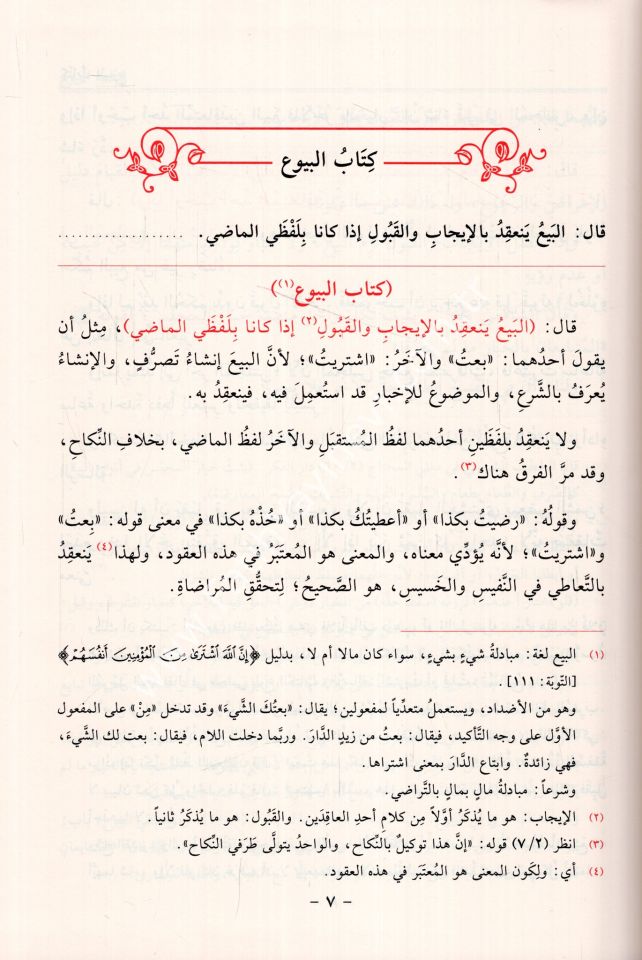 كِتَابُ البيوع
قال: البَيعُ يَنعقِدُ بالإيجابِ والقَبُولِ إذا كانا بِلَفْظَي الماضي. ..................
(كتاب البيوع(١))
قال: (البَيعُ يَنعقِدُ بالإيجابِ والقَبُولِ(٢) إذا كانا بِلَفْظَي الماضي)، مِثلُ أن
يقولَ أحدُهما: «بعتُ» والآخَرُ: «اشتريتُ»؛ لأنَّ البيعَ إنشاءُ تَصرُّفٍ، والإنشاءُ
يُعرَفُ بالشَّرعِ، والموضوعُ للإخبارِ قد استُعمِلَ فيه، فينعقِدُ به.
ولا يَنعقِدُ بلفظَينِ أحدُهما لفظُ المُستقبَلِ والآخَرُ لفظُ الماضي، بخلافِ النِّكاحِ،
وقد مرَّ الفرقُ هناك(٣).
وقولُهُ: «رضيتُ بكذا» أو «أعطيتُكُ بكذا» أو «خُذْهُ بكذا» في معنى قوله: «بِعتُ»
و«اشتريتُ»؛ لأنَّه يُؤدِّي معناه، والمعنى هو المُعتَبَرُ في هذه العقود، ولهذا(٤) يَنعقِدُ
بالتَّعاطي في النَّفيسِ والخَسيسِ، هو الصَّحيحُ؛ لِتحقُّقِ المُراضاةِ.
(١) البيع لغة: مبادلةُ شيءٍ بشيءٍ، سواء كان مالا أم لا، بدليل ﴿إِنَّ اللَّهَ اشْتَرَىٰ مِنَ الْمُؤْمِنِينَ أَنفُسَهُمْ﴾
[التّوبَة: ١١١].
وهو من الأضداد، ويستعملُ متعدِّياً لمفعولين؛ يقال: «بعتُكَ الشَّيءَ» وقد تدخل «مِنْ» على المفعول
الأوَّل على وجه التَّأكيد، فيقال: بعتُ من زيدٍ الدَّارَ. وربَّما دخلت اللام، فيقال: بعت لك الشَّيءَ،
فهي زائدةٌ. وابتاع الدَّارَ بمعنى اشتراها.
وشرعاً: مبادلةُ مالٍ بمالٍ بالتَّراضي.
(٢) الإيجاب: هو ما يُذكَرُ أوَّلاً مِن كلامِ أحدِ العاقِدَين. والقَبُول: هو ما يُذكَرُ ثانياً.
(٣) انظر (٧/٢) قوله: «إنَّ هذا توكيلٌ بالنِّكاح، والواحدُ يتولَّى طَرَفي النِّكاح».
(٤) أي: ولِكَون المعنى هو المُعتَبَر في هذه العقود.
- ٧ -